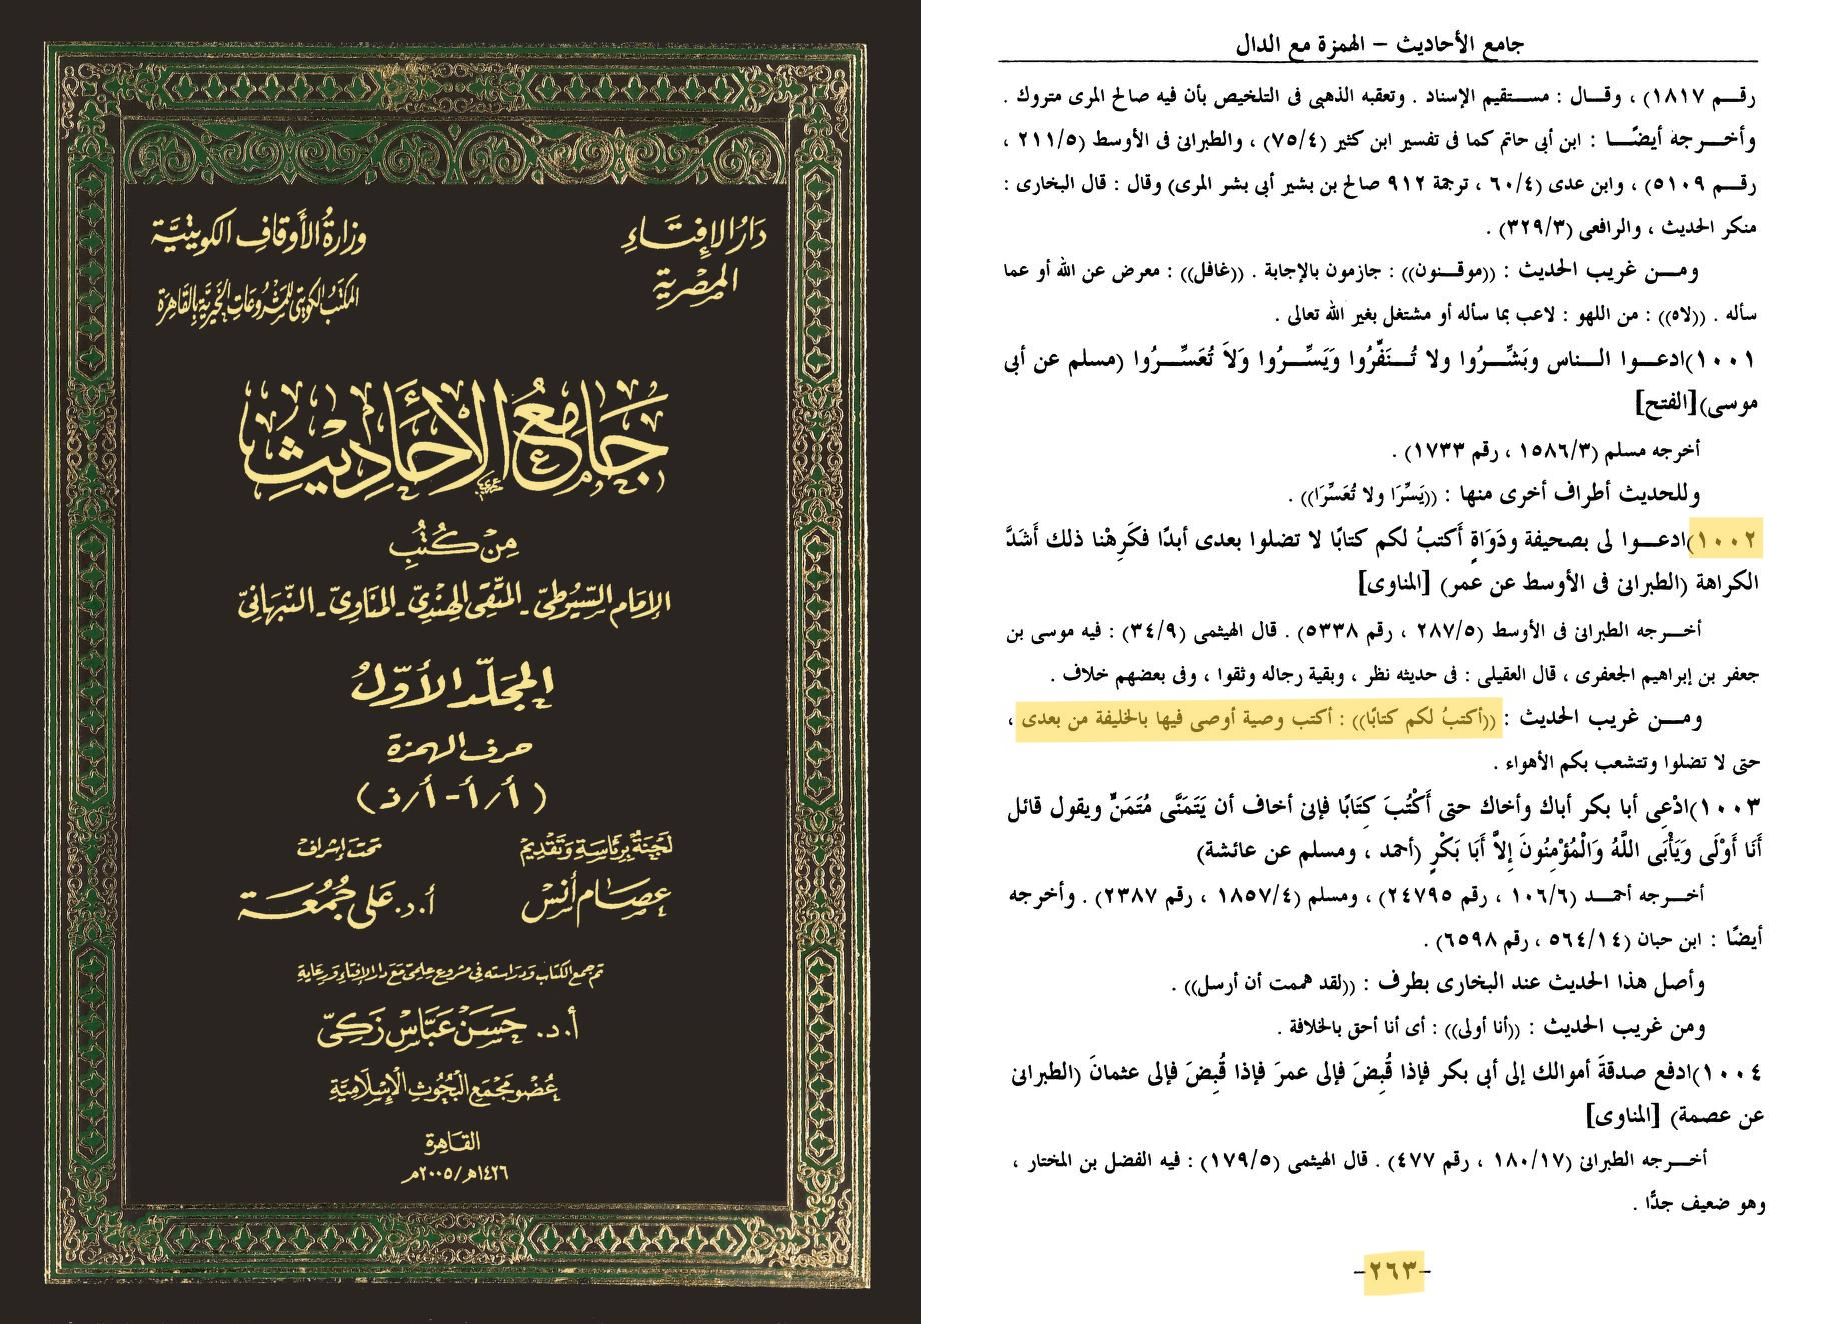 دار الإفتاء
المصرية
وزارة الأوقاف الكويتية
المكتب الكويتى للمشروعات الخيرية بالقاهرة
جَامِعُ الأَحَادِيثِ
مِن كُتُبِ
الإمَام السّيُوطىّ - المتّقى الهِنْدِىّ - المنَاوِىّ - النّبهَانىّ
المجَلّد الأوّلُ
حرف الهمزة
(أ/أ - أ/ذ)
لجنَةٌ برئاسَةِ وَتَقْديم
عصَام أنسْ
تحت إشراف
أ.د. عَلى جُمُعَة
تم جمع الكتاب وَدراسته في مشروع علمىّ مَعَ دار الإفتاءِ وَرعَاية
أ.د. حَسَنْ عَبَّاسْ زَكِىّ
عُضو مَجْمَع البُحُوث الإسْلاميَّة
القَاهِرة
١٤٢٦هـ/٢٠٠٥م
جامع الأحاديث – الهمزة مع الدال
رقـــم ١٨١٧) ، وقـــال : مســـتقيم الإسناد . وتعقبه الذهبى فى التلخيص بأن فيه صالح المرى متروك .
وأخـــرجه أيضًـــا : ابن أبى حاتم كما فى تفسير ابن كثير (٧٥/٤) ، والطبرانى فى الأوسط (٢١١/٥ ،
رقـــم ٥١٠٩) ، وابن عدى (٦٠/٤ ، ترجمة ٩١٢ صالح بن بشير أبى بشر المرى) وقال : قال البخارى :
منكر الحديث ، والرافعى (٣٢٩/٣) .
ومـــن غريب الحديث : ((موقـــنون)) : جازمون بالإجابة . ((غافل)) : معرض عن الله أو عما
سأله . ((لاه)) : من اللهو : لاعب بما سأله أو مشتغل بغير الله تعالى .
١٠٠١)ادعـــوا الـــناس وبَشِّـــرُوا ولا تُـــنَفِّرُوا وَيَسِّـــرُوا وَلاَ تُعَسِّـــرُوا (مسلم عن أبى
موسى)[الفتح]
أخرجه مسلم (١٥٨٦/٣ ، رقم ١٧٣٣) .
وللحديث أطراف أخرى منها : ((يَسِّرَا ولا تُعَسِّرَا)) .
١٠٠٢)ادعـــوا لى بصحيفة ودَوَاةٍ أَكتبُ لكم كتابًا لا تضلوا بعدى أبدًا فكَرِهْنا ذلك أَشَدَّ
الكراهة (الطبرانى فى الأوسط عن عمر) [المناوى]
أخـــرجه الطبرانى فى الأوسط (٢٨٧/٥ ، رقم ٥٣٣٨) . قال الهيثمى (٣٤/٩) : فيه موسى بن
جعفر بن إبراهيم الجعفرى ، قال العقيلى : فى حديثه نظر ، وبقية رجاله وثقوا ، وفى بعضهم خلاف .
ومـــن غريب الحديث : ((أكتبُ لكم كتابًا)) : أكتب وصية أوصى فيها بالخليفة من بعدى ،
حتى لا تضلوا وتتشعب بكم الأهواء .
١٠٠٣)ادْعِى أبا بكر أباك وأخاك حتى أَكْتُبَ كِتَابًا فإنى أخاف أن يَتَمَنَّى مُتَمَنٍّ ويقول قائل
أَنَا أَوْلَى وَيَأْبَى اللَّهُ وَالْمُؤْمِنُونَ إِلاَّ أَبَا بَكْرٍ (أحمد ، ومسلم عن عائشة)
أخـــرجه أحمـــد (١٠٦/٦ ، رقم ٢٤٧٩٥) ، ومسلم (١٨٥٧/٤ ، رقم ٢٣٨٧) . وأخرجه
أيضًا : ابن حبان (٥٦٤/١٤ ، رقم ٦٥٩٨) .
وأصل هذا الحديث عند البخارى بطرف : ((لقد هممت أن أرسل)) .
ومن غريب الحديث : ((أنا أولى)) : أى أنا أحق بالخلافة .
١٠٠٤)ادفع صدقةَ أموالك إلى أبى بكر فإذا قُبِضَ فإلى عمرَ فإذا قُبِضَ فإلى عثمانَ (الطبرانى
عن عصمة) [المناوى]
أخـــرجه الطبرانى (١٨٠/١٧ ، رقم ٤٧٧) . قال الهيثمى (١٧٩/٥) : فيه الفضل بن المختار ،
وهو ضعيف جدًّا .
–٢٦٣–